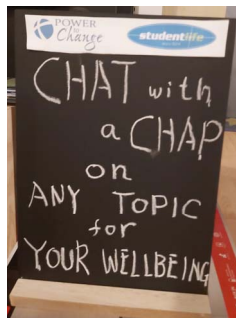 POWER
to
Change
studentlife
CHAT with
a CHAP
on
ANY TOPIC
for
YOUR WELLBEING